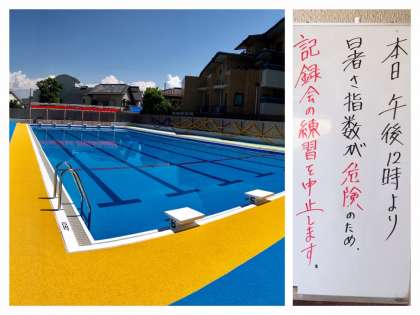 本日 午後12時より
暑さ指数が危険のため、
記録会の練習を中止します。